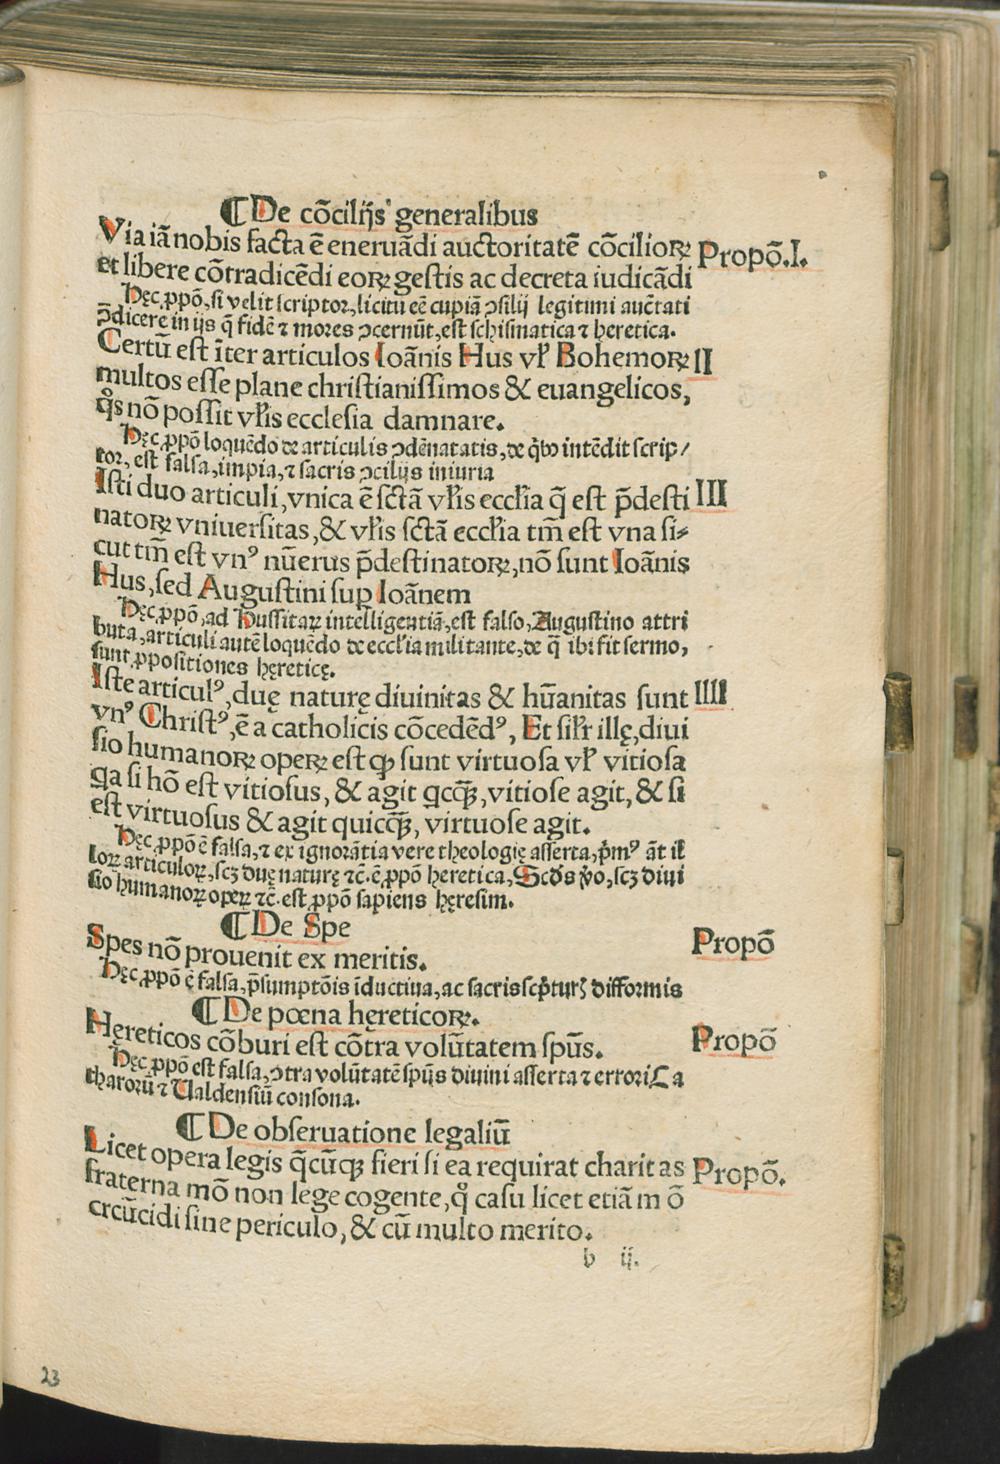 ¶ De cōciliȷs generalibus
Via iā nobis facta ē eneruādi auctoritatē cōcilioꝝ Propō.I.
et libere cōtradicēdi eoꝝ gestis ac decreta iudicādi
Hęc ꝓpō, si velit scriptor, licitū eē cupiā ꝯsilij legitimi auctati
ꝯdicere in ijs q̄ fidē ⁊ mores ꝯcernūt, est schismatica ⁊ heretica.
Certū est īter articulos Ioānis Hus vƚ Bohemoꝝ II
multos esse plane christianissimos & euangelicos,
qͦs nō possit vƚis ecclesia damnare.
Hęc ꝓpō loquēdo de articulis ꝯdēnatatis, de qͥbꝰ intēdit scrip/
tor, est falsa, impia, ⁊ sacris ꝯcilijs iniuria
Isti duo articuli, vnica ē sctā vƚis eccƚia q̄ est p̄desti III
natoꝝ vniuersitas, & vƚis sctā eccƚia tm̄ est vna si⸗
cut tm̄ est vnꝰ nūerus p̄destinatoꝝ, nō sunt Ioānis
Hus, sed Augustini suꝑ Ioānem
Hęc ꝓpō, ad Hussitaꝝ intelligentiā, est falso, Augustino attri
buta, articuli autē loquēdo de eccƚia militante, de q̄ ibi fit sermo,
sunt ꝓpositiones hęreticę.
Iste articulꝰ, duę naturę diuinitas & hūanitas sunt IIII
vnꝰ Christꝰ, ē a catholicis cōcedēdꝰ, Et siƚr illę, diui
sio humanoꝝ opeꝝ est ꝙ sunt virtuosa vƚ vitiosa
qa si hō est vitiosus, & agit qcꝗ̄, vitiose agit, & si
est virtuosus & agit quicꝗ̄, virtuose agit.
Hęc ꝓpō ē falsa, ⁊ ex ignorātia vere theologię asserta, p̄mꝰ āt il
loꝝ articuloꝝ, scꝫ duę naturę ⁊c̄. ē ꝓpō heretica, Scdꝰs v̄o, scꝫ diui
sio humanoꝝ opeꝝ ⁊c̄. est ꝓpō sapiens hęresim.
¶ De Spe
Spes nō prouenit ex meritis. Propō
Hęc ꝓpō ē falsa, p̄sumptōis īductiua, ac sacris scp̄turꝭ difformis
¶ De pœna hęreticoꝝ.
Hęreticos cōburi est cōtra volūtatem spūs. Propō
Hęc ꝓpō est falsa, ꝯtra volūtatē spūs diuini asserta ⁊ errori Ca
tharorū ⁊ Ualdensiū consona.
¶ De obseruatione legaliū
Licet opera legis q̄cūꝗ fieri si ea requirat charitas Propō.
fraterna mō non lege cogente, qͦ casu licet etiā mō
crcūcidi sine periculo, & cū multo merito.
b ij.
23